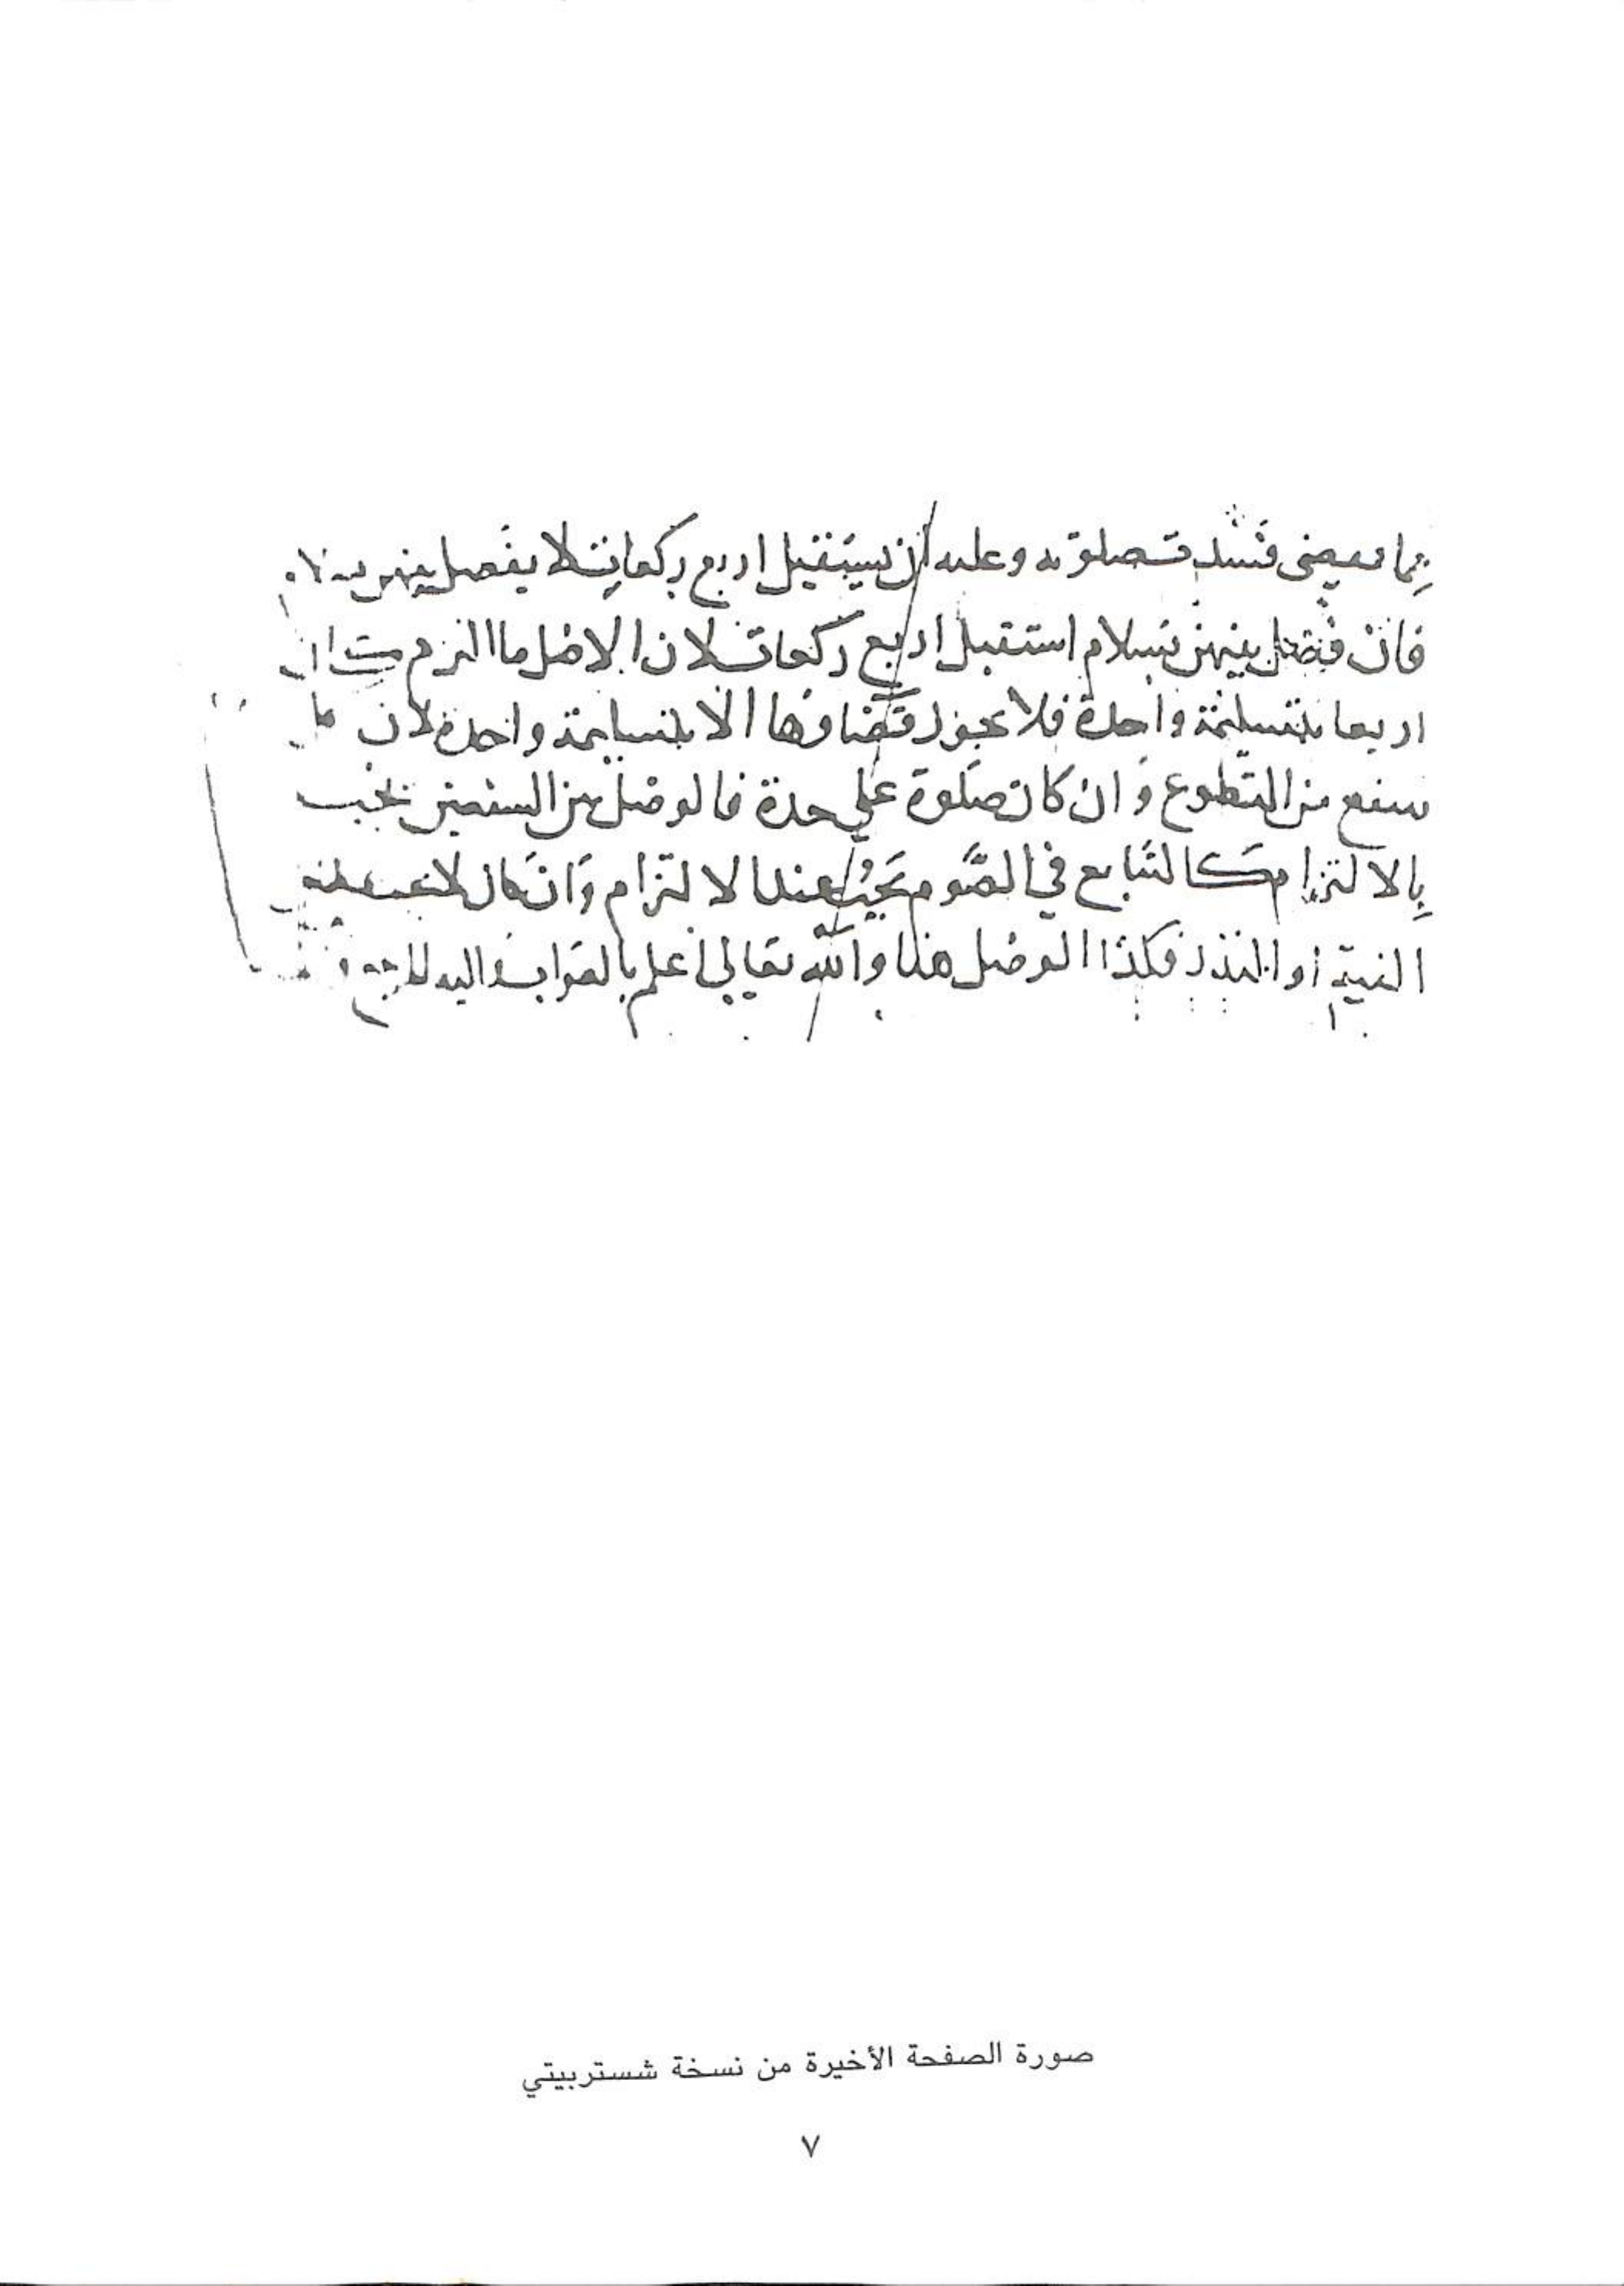 فسدت صلوته وعليه ان يستقبل اربع ركعات لا يفصل بينهن
فان فصل بينهن بسلام استقبل اربع ركعات لان الاصل ما التزم
اربعا بتسليمة واحدة فلا يجوز قضاوها الا بتسليمة واحدة لان كل
شفع من التطوع وان كان صلوة على حدة فالوصل بين الشفعين يجب
بالالتزام كالتتابع في الصوم يجب عند الالتزام وان كان لا يجب
النية او النذر فكذا الوصل هذا والله تعالى اعلم بالصواب واليه المرجع
صورة الصفحة الأخيرة من نسخة شستربيتي
٧